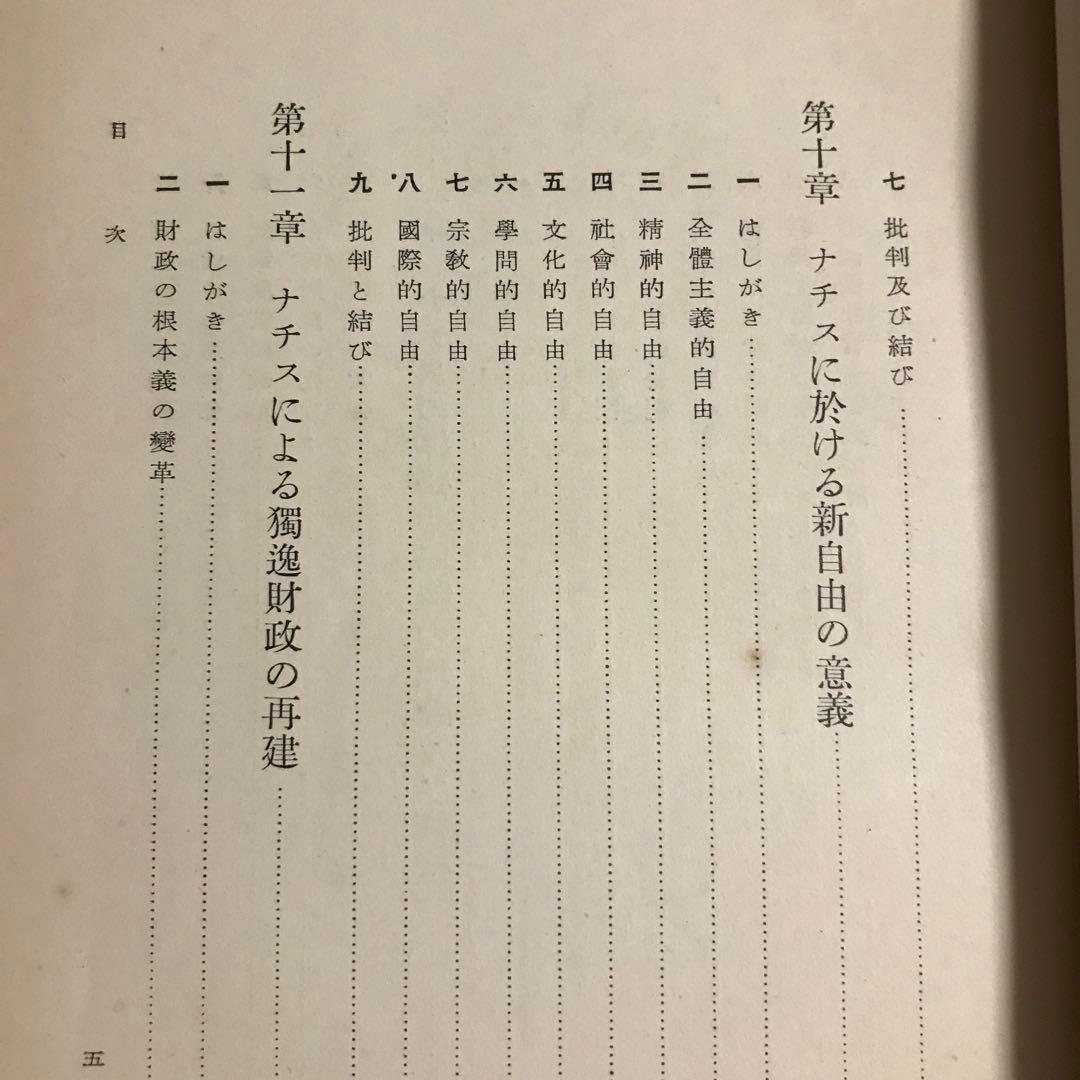 七 批判及び結び
第十章 ナチスに於ける新自由の意義
一 はしがき
二 全體主義的自由
三 精神的自由
四 社會的自由
五 文化的自由
六 學問的自由
七 宗教的自由
八 國際的自由
九 批判と結び
第十一章 ナチスによる獨逸財政の再建
一 はしがき
二 財政の根本義の變革
目次
五